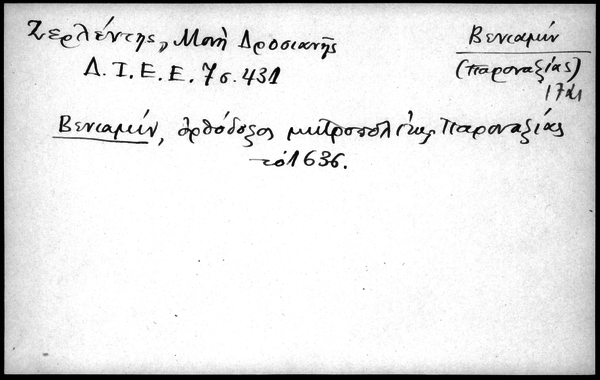 Ζερλέντης, Μονὴ Δροσιανῆς
Δ.Ι.Ε.Ε. 7 σ. 431
Βενιαμίν
(Παροναξίας)
Βενιαμίν, ὀρθόδοξος μητροπολίτης Παροναξίας
τὸ 1636.